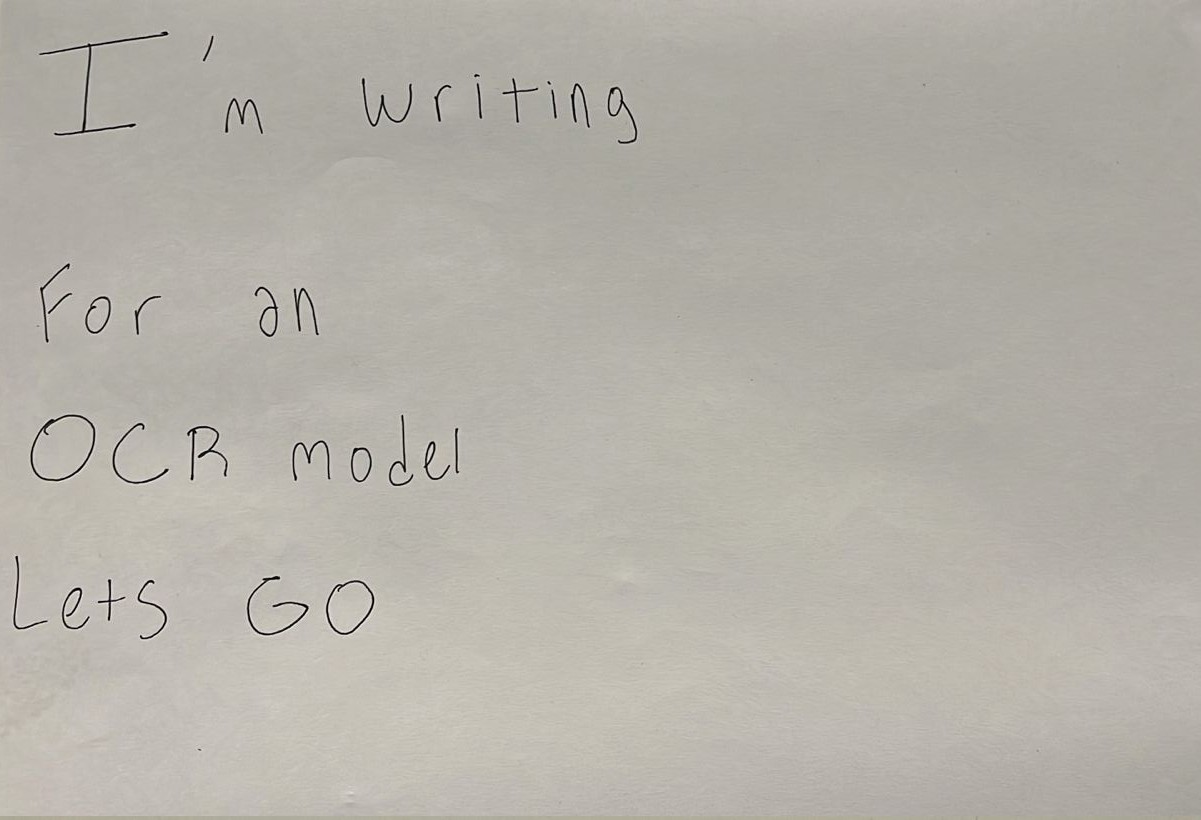 I'm writing
For an
OCR model
Lets GO